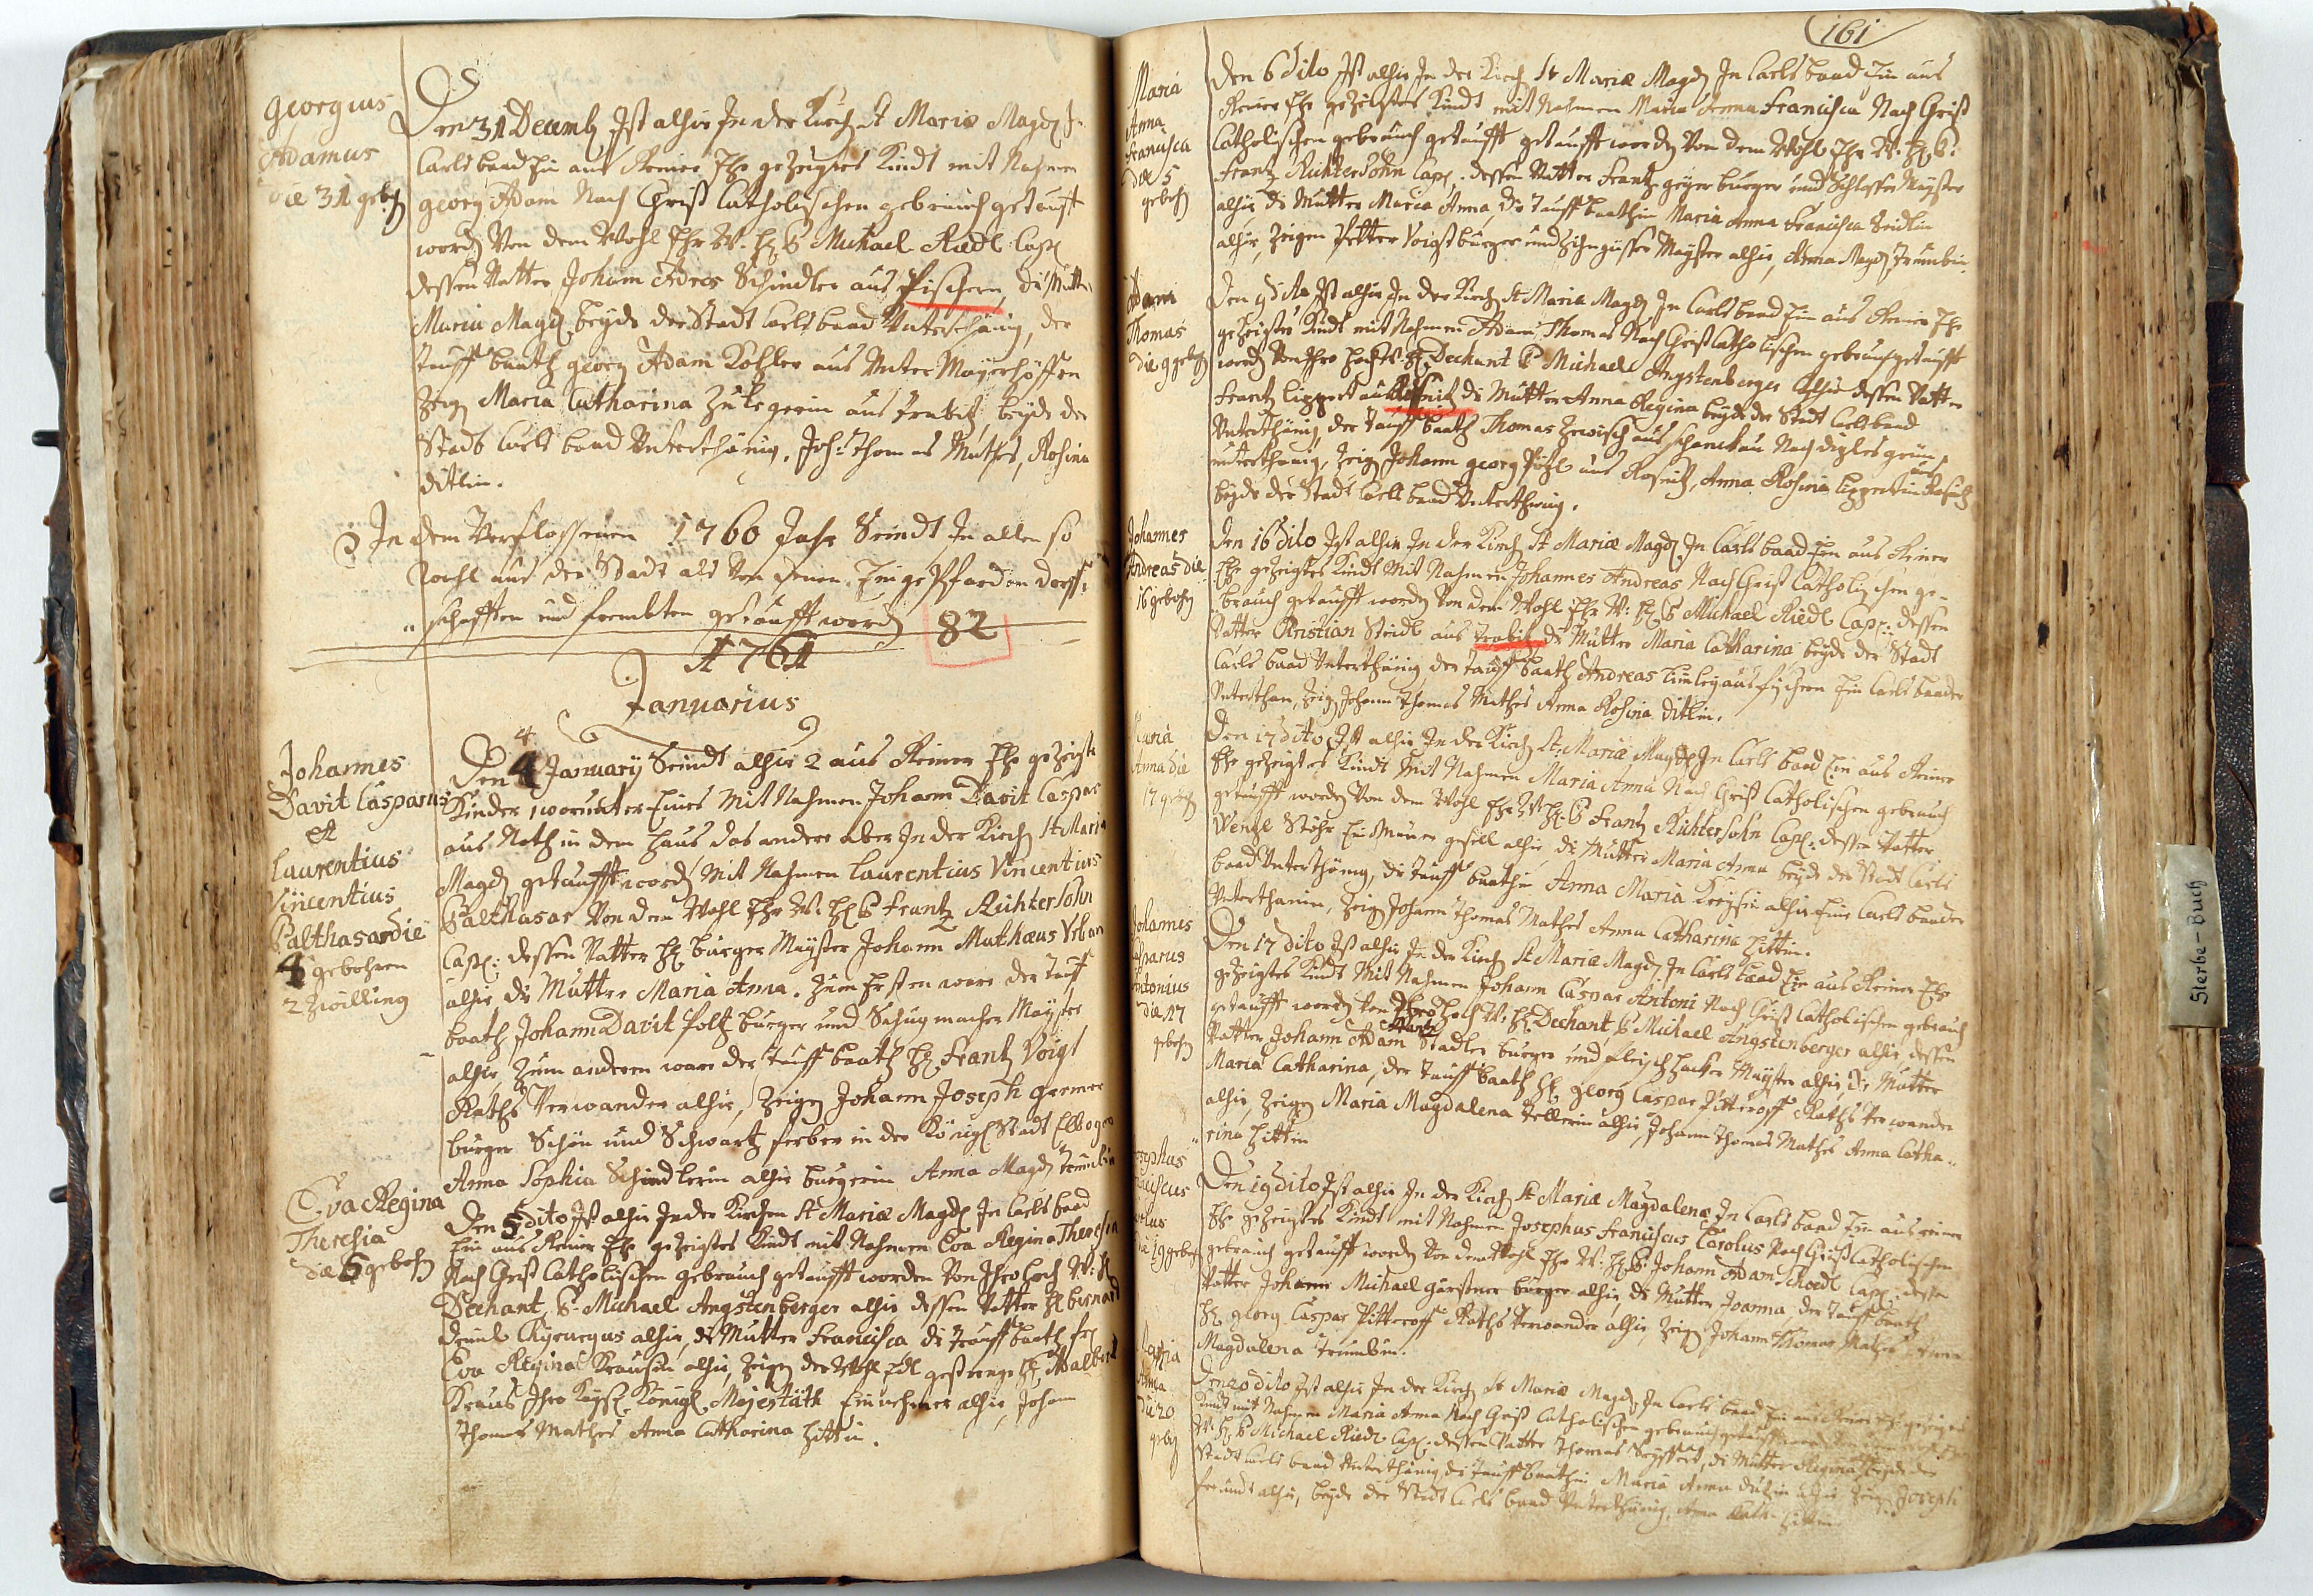 Georgius
Adamus
die 31 geboh
Den 31 Decemb Ist alhie In der Kirch St Mariæ Magd I
Carls baad Ein aus Reiner Ehe gezeigtes Kindt mit Nahmen
georg Adam Nach Christ Catholischen gebrauch getaufft
word Von dem Wohl Ehr W. H P Michael Riedl Capl
dessen Vatter Johann Adres Schindler aus Fischern, die Mutter
Maria Magd beyde der Stadt Carlsbaad Unterthänig, der
Tauff baath georg Adam Kohler aus Unter Mayerhöffen
Zeig Maria Catharina aus Trabitz beyde der
Stadt Carls baad Unterthänig, Joh: Thomas Mathes, Rosina
ditlin.
In dem Verflossenen 1760 Jahr Seindt In allen so
wohl aus der Stadt als Von denen Eingepfardten dorff=
schafften und frembten getaufft word 82
1761
Januarius
Johannes
Davit Casparus
et
Laurentius
Vincentius
Balthasar die
4 gebohren
2 Zwilling
4
Den 4 January Seindt alhie 2 aus Reiner Ehe gezeigte
Kinder, worunter Eines Mit Nahmen Johann Davit Caspar
aus Noth in dem Haus das andere aber In der Kirch St Maria
Magd getaufft word Mit Nahmen Laurentius Vincentius
Balthasar Von dem Wohl Ehr W. H P Frantz Richtersohn
Capl: dessen Vatter H burger Mayster Johann Mathæus Urban
alhie die Mutter Maria Anna. Zum Ersten ware der Tauff
baath Johann Davit Poltz burger und Schugmacher Mayster
alhie, Zum anderen ware der Tauff baath H Frantz Voigt
Raths Verwander alhie, Zeigen Johann Joseph germer
burger Schön und Schwartz ferber in der Königl Stadt Ellbogen
Anna Sophia Schindlerin alhie burgerin Anna Magd
Eva Regina
Theresia
die 5 geboh
Den 5 dito Ist alhie In der Kirchen St Mariæ Magd In Carls baad
Ein aus Reiner Ehe gezeigtes Kindt mit Nahmen Eva Regina Theresia
Nach Christ Catholischen gebrauch getaufft worden Von Ihro Hoch W: H
Dechant, P. Michael Angstenberger alhie dessen Vatter H bernard
alhie, die Mutter Francisca die Tauff baath
Eva Regina Krausin alhie, Zeigen der Wohl Edl gestrenge H
Kraus Ihro Kaysl. Königl. Majestäth Einnehmer alhie, Johann
Thomas Mathes Anna Catharina Zittin.
161
Maria
Anna
Francisca
die 5
geboh
Den 6 dito Ist alhie In der Kirch St Mariæ Magd In Carls baad Ein aus
Reiner Ehe gezeigtes Kindt mit Nahmen Maria Anna Francisca Nach Christ
Catholischen gebrauch getaufft getaufft word Von dem Wohl Ehr W. H P:
Frantz Richtersohn Capl. dessen Vatter Frantz geyer burger und Schlosser Mayster
alhie die Mutter Maria Anna, die Tauff baathin Maria Anna Francisca Seidlin
alhie, Zeigen Petter Voigt burger und Zihngisser Mayster alhie, Anna Magd
Adam
Thomas
die 9 geboh
Den 9 dito Ist alhie In der Kirch St Mariæ Magd In Carls baad Ein aus Reiner Ehe
gezeigtes Kindt mit Nahmen Adam Thomas Nach Christ Catholischen gebrauch getaufft
word Von Ihro Hoch W. H Dechant P Michael Angstenberger alhie dessen Vatter
Frantz Lippert aus Rosnitz die Mutter Anna Regina beyde der Stadt Carls baad
Unterthänig der Tauff baath Thomas aus Schanckau Nach
unterthänig, Zeig Johann georg aus Rosnitz, Anna Rosina Lippertin aus Rosnitz
beyde der Stadt Carls baad Unterthänig.
Johannes
Andreas die
16 geboh
Den 16 dito Ist alhie In der Kirch St Mariæ Magd In Carls baad Ein aus Reiner
Ehe gezeigtes Kindt Mit Nahmen Johannes Andreas Nach Christ Catholischen ge-
brauch getaufft worden Von dem Wohl Ehr W: H P Michael Riedl Capl: dessen
Vatter Kristian Steidl aus Trabitz die Mutter Maria Catharina beyde der Stadt
Carls baad Unterthänig der Tauff baath Andreas aus fischern Ein Carls baader
Unterthan, Zeig Johann Thomas Mathes Anna Rosina ditlin.
Maria
Anna die
17 geboh
Den 17 dito Ist alhie In der Kirch St: Mariæ Magd In Carls baad Ein aus Reiner
Ehe gezeigtes Kindt Mit Nahmen Maria Anna Nach Christ Catholischen gebrauch
getaufft worden Von dem Wohl Ehr W: H: P Frantz Richtersohn Capl: dessen Vatter
Wenzl Stöhr Ein Maurer gesell alhie, die Mutter Maria Anna beyde der Stadt Carls
baad Unterthänig, die Tauff baathin Anna Maria alhie Eine Carls baader
Unterthanin, Zeig Johann Thomas Mathes Anna Catharina Zittin.
Johannes
Casparus
Antonius
die 17
geboh
Den 17 dito Ist alhie In der Kirch St Mariæ Magd. In Carls baad Ein aus Reiner Ehe
gezeigtes Kindt Mit Nahmen Johann Caspar Antoni Nach Christ Catholischen gebrauch
getaufft worden Von Ihro Hoch W: H Dechant, P Michael Angstenberger alhie, dessen
Vatter Johann Adam Stadler burger und fleischhacker Mayster alhie, die Mutter
Maria Catharina, der Tauff baath H georg Caspar Pitteroff Raths Verwander
alhie, Zeigen Maria Magdalena Tellerin alhie, Johann Thomas Mathes Anna Catha=
rina Zittin
Josephus
Franciscus
Carolus
die 19 geboh
Den 19 dito Ist alhie In der Kirch St Mariæ Magdalenæ In Carls baad Ein aus reiner
Ehe gezeigtes Kindt mit Nahmen Josephus Franciscus Carolus Nach Christ Catholischen
gebrauch getaufft worden Von dem Wohl Ehr W: H P: Johann Adam Capl. dessen
Vatter Johann Michael gärttner burger alhie, die Mutter Joanna, der Tauff baath
H georg Caspar Pitteroff Raths Verwander alhie Zeig Johann Thomas Mathes Anna
Magdalena
Maria
Anna
die 20
geboh
Den 20 dito Ist alhie In der Kirch St Mariæ Magd In Carls baad Ein aus Reiner Ehe gezeigtes
Kindt mit Nahmen Maria Anna Nach Christ Catholischen gebrauch getaufft
W. H P Michael Riedl Capl. dessen Vatter Thomas Seyffert, die Mutter Regina beyde der
Stadt Carls baad Unterthänig die Tauff baathin Maria Anna alhie Zeig Joseph
alhie, beyde der Stadt Carls baad Unterthänig, Anna Cath: Zittin
Sterbe-Buch